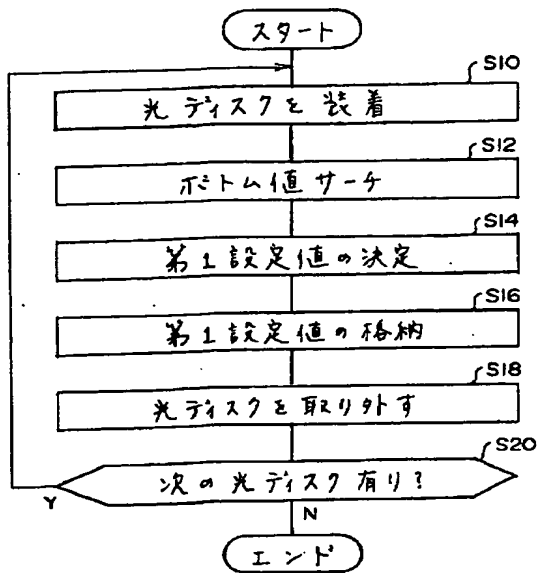 スタート
S10
光ディスクを装着
S12
ボトム値サーチ
S14
第1設定値の決定
S16
第1設定値の格納
S18
光ディスクを取り外す
S20
次の光ディスク有り?
Y
N
エンド